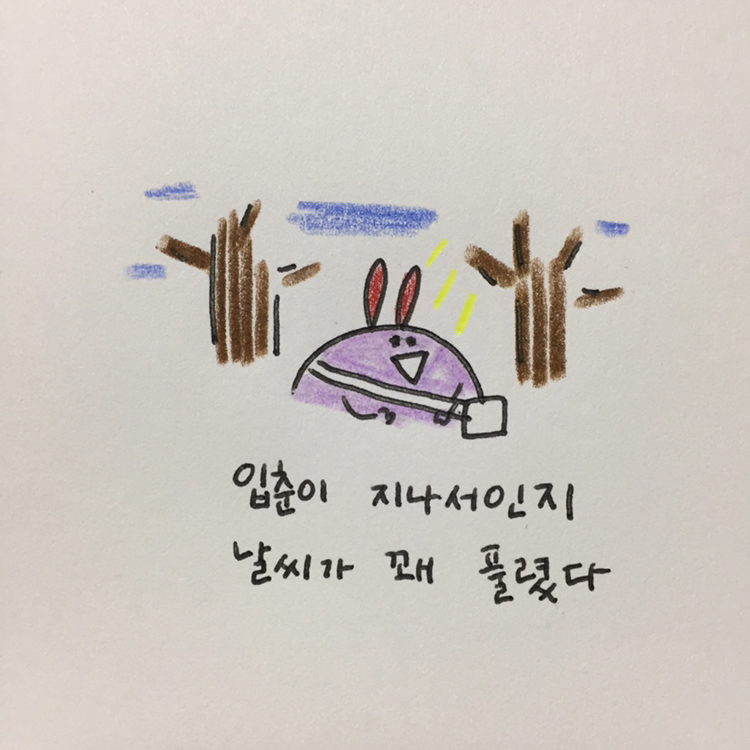 입춘이 지나서인지
날씨가 꽤 풀렸다